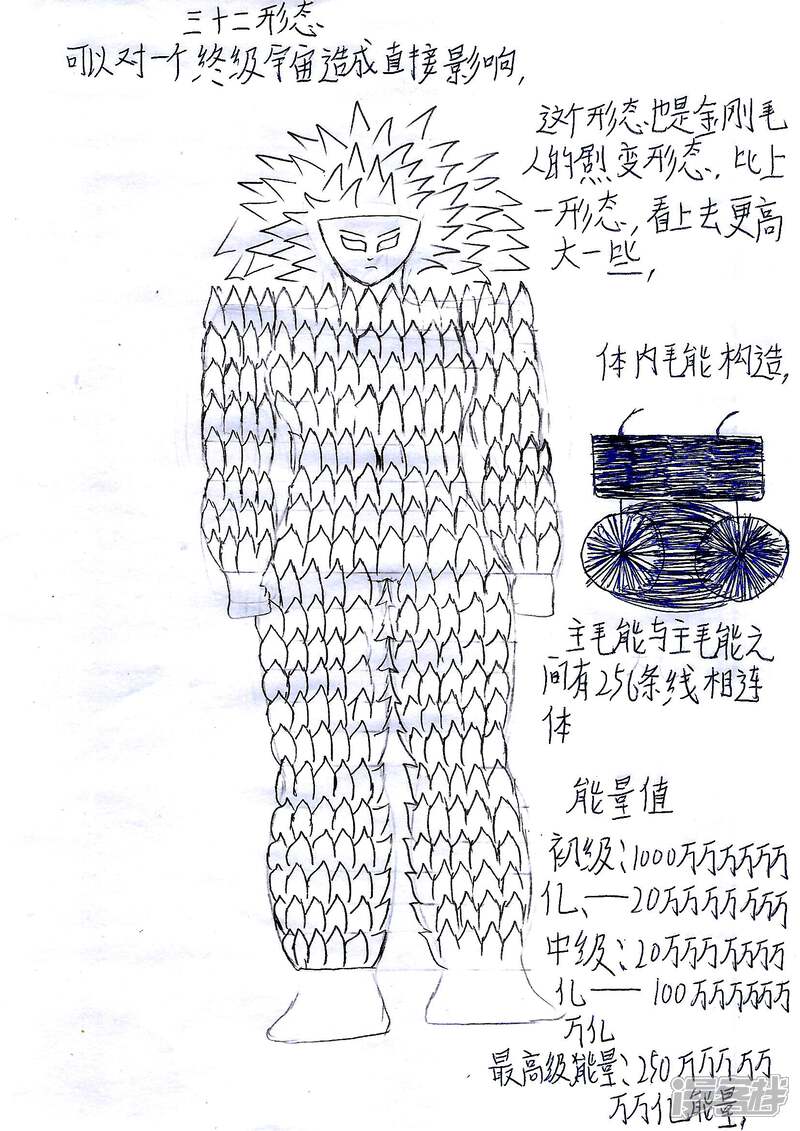 三十二形态
可以对一个终级宇宙造成直接影响,
这个形态也是金刚毛
人的烈变形态,比上
一形态,看上去更高
大一些,
体内毛能构造,
主毛能与主毛能之
间有256条线相连
体
能量值
初级:1000万万万万万
亿、—20万万万万万万
中级:20万万万万万万
亿——100万万万万万
万亿
最高级能量:250万万万万
万万亿能量,
漫客栈